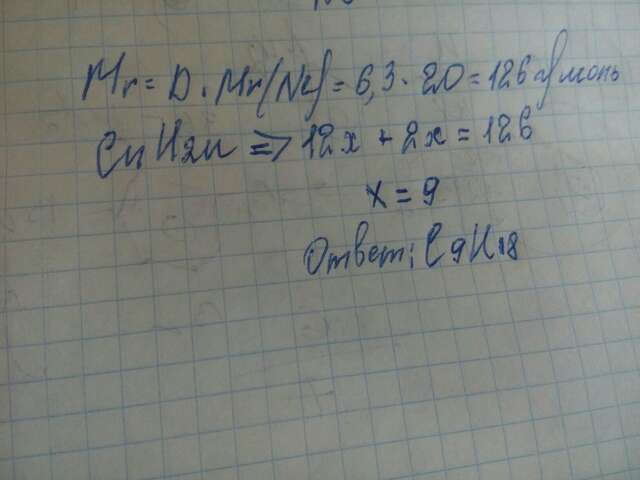 Mr = D · Mr(Ne) = 6,3 · 20 = 126 г/моль
CnH2n => 12x + 2x = 126
x = 9
Ответ: C9H18